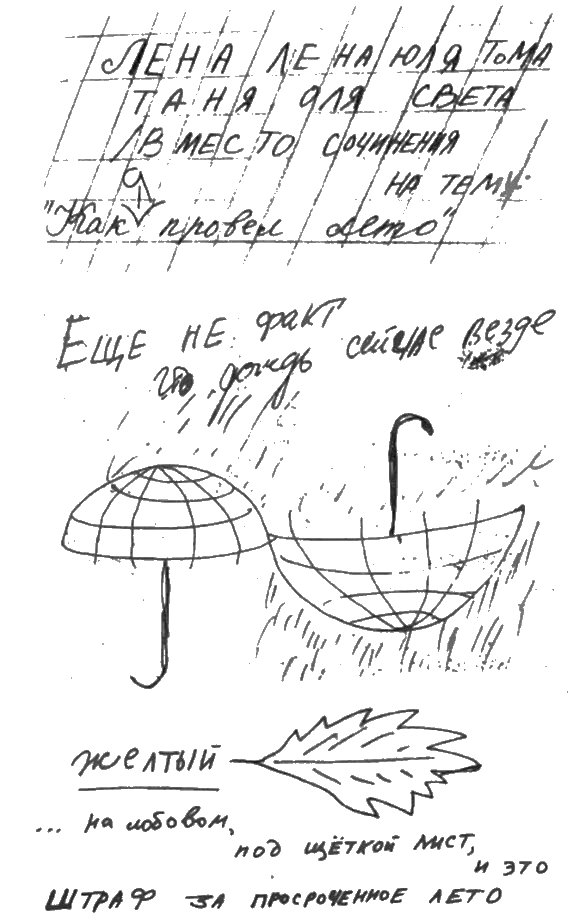 ЛЕНА ЛЕНА ЮЛЯ ТОМА
ТАНЯ ОЛЯ СВЕТА
ВМЕСТО СОЧИНЕНИЯ
НА ТЕМУ
"Как Я провел лето"
ЕЩЕ НЕ ФАКТ
что дождь сейчас везде
желтый
... на лобовом,
под щёткой лист,
и это
ШТРАФ ЗА ПРОСРОЧЕННОЕ ЛЕТО